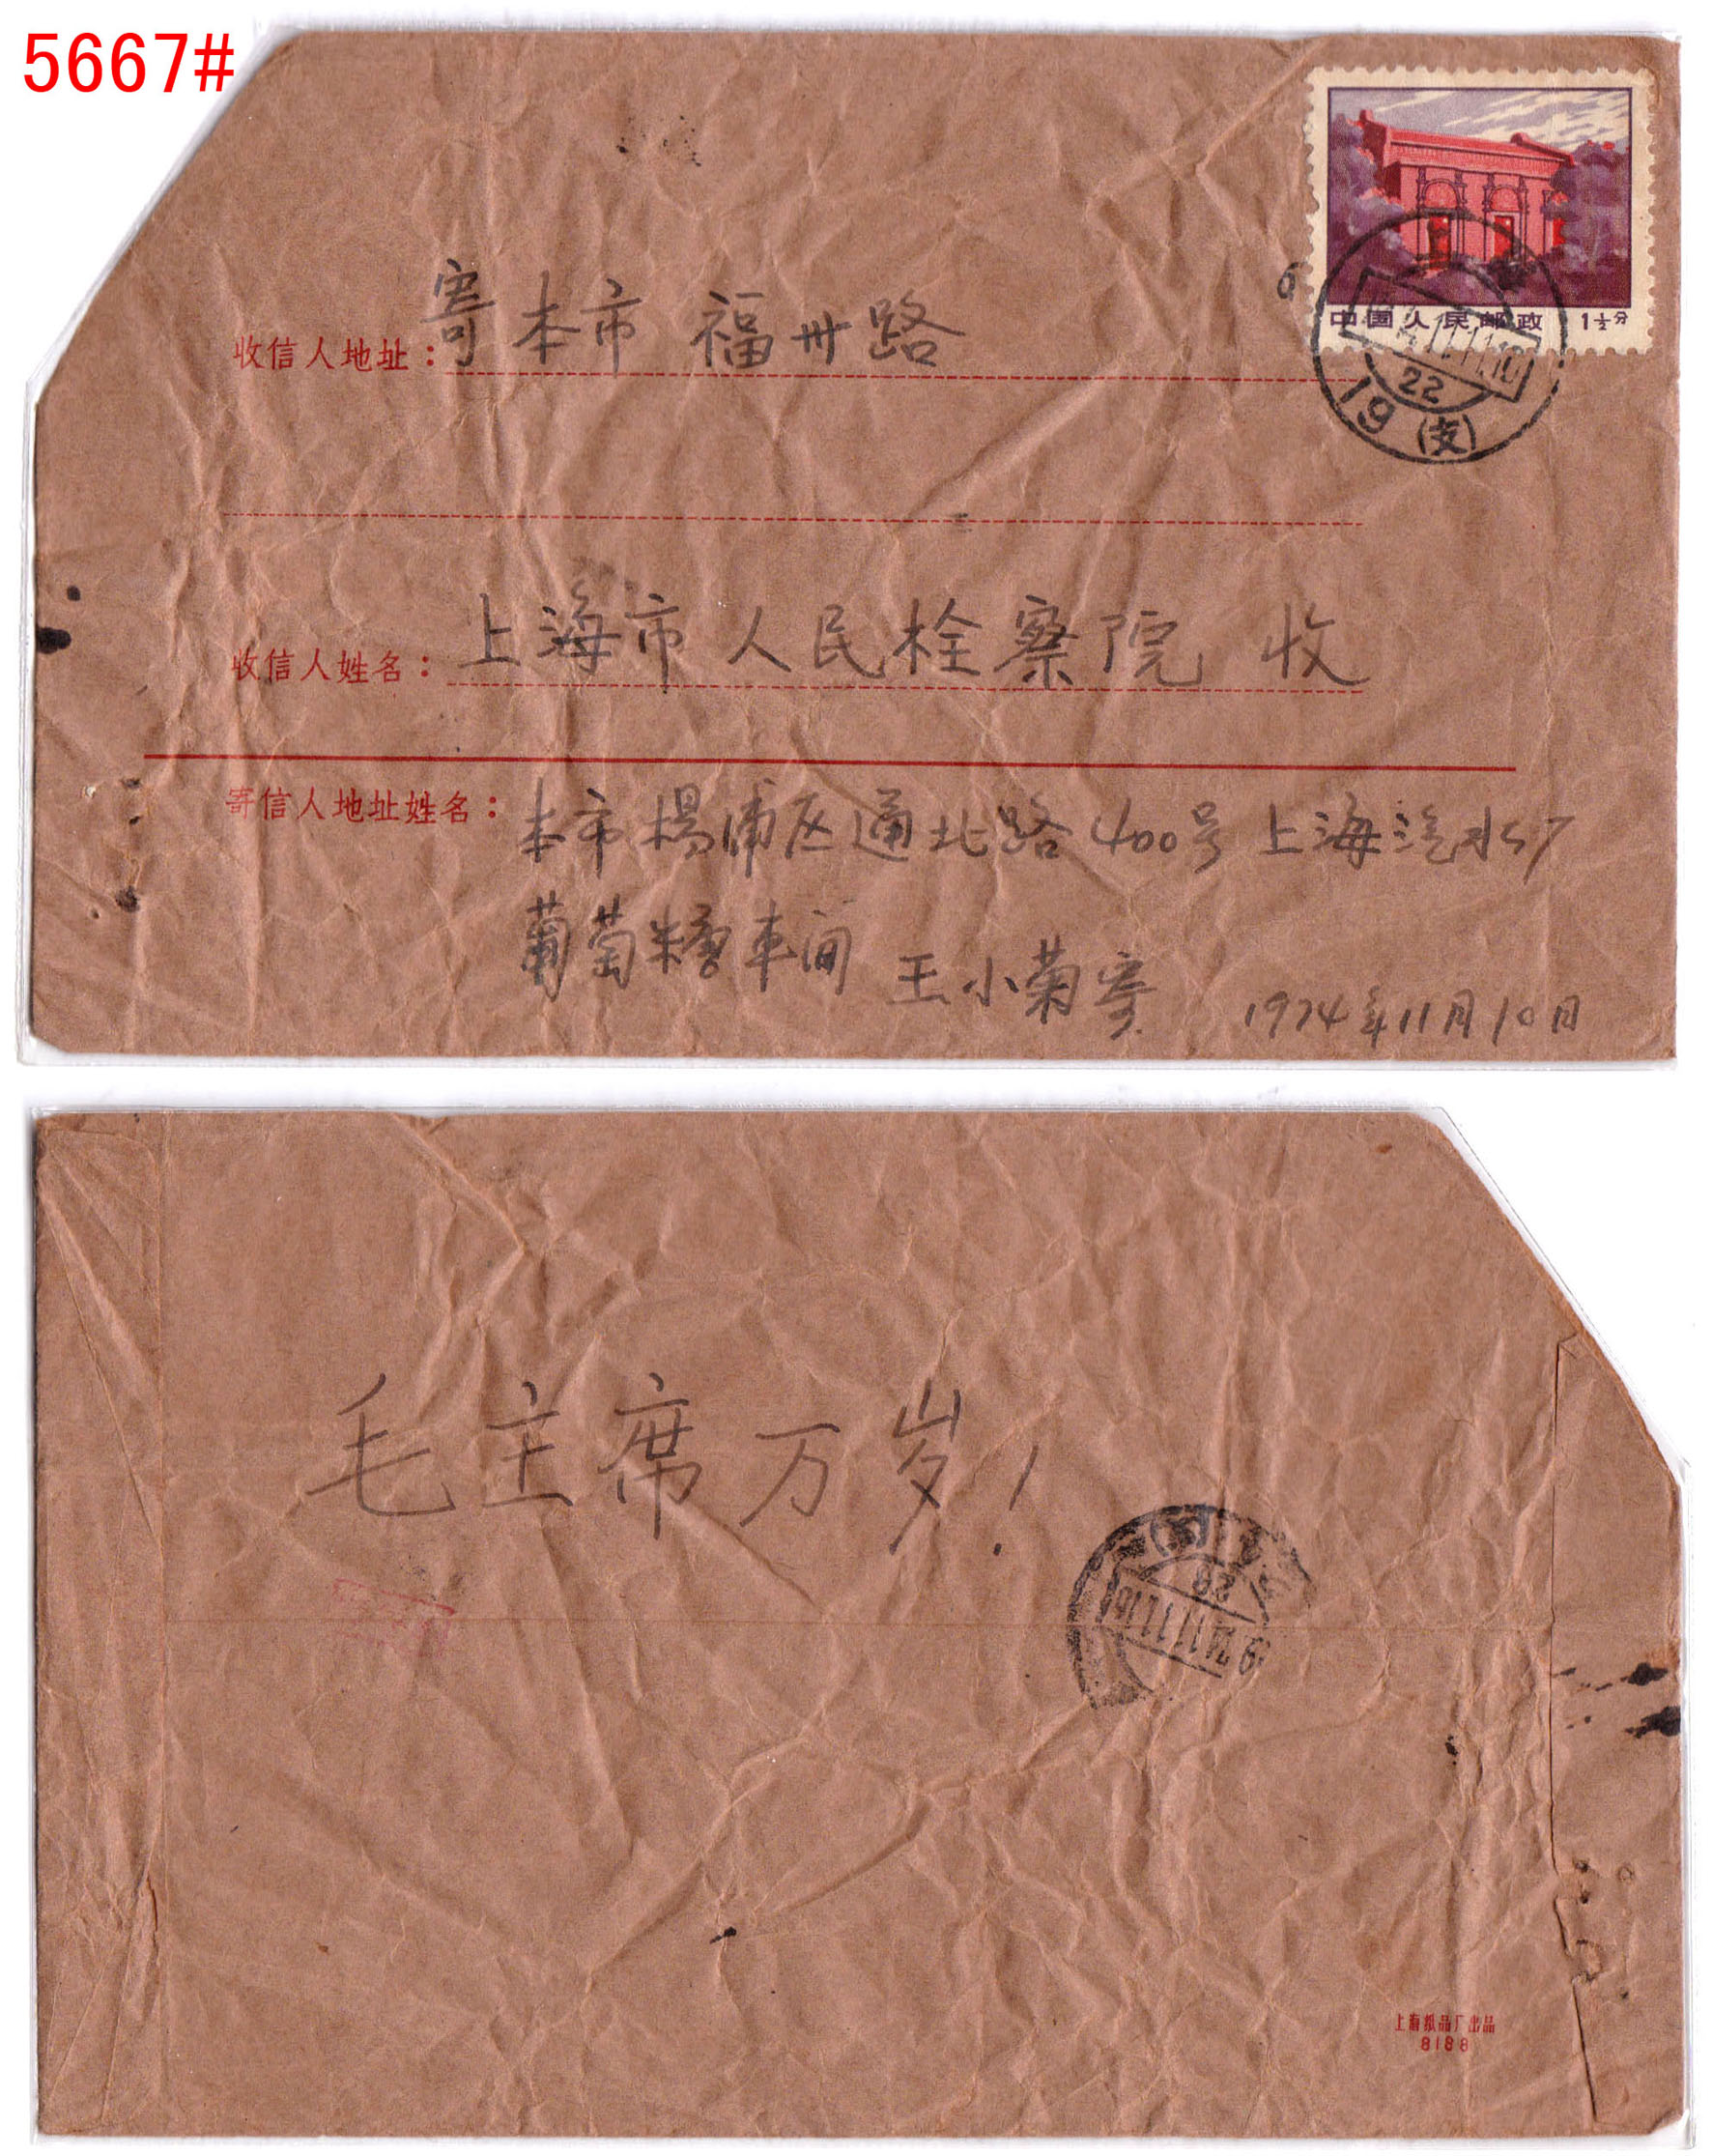 5667#
中国人民邮政 1½分
22
19 (支)
收信人地址：寄本市 福州路
收信人姓名：上海市人民栓察院 收
寄信人地址姓名：本市 楊浦区通北路400号 上海汽水厂
葡萄糖车间 王小菊寄 1974年11月10日
毛主席万岁！
上海纸品厂出品
8188